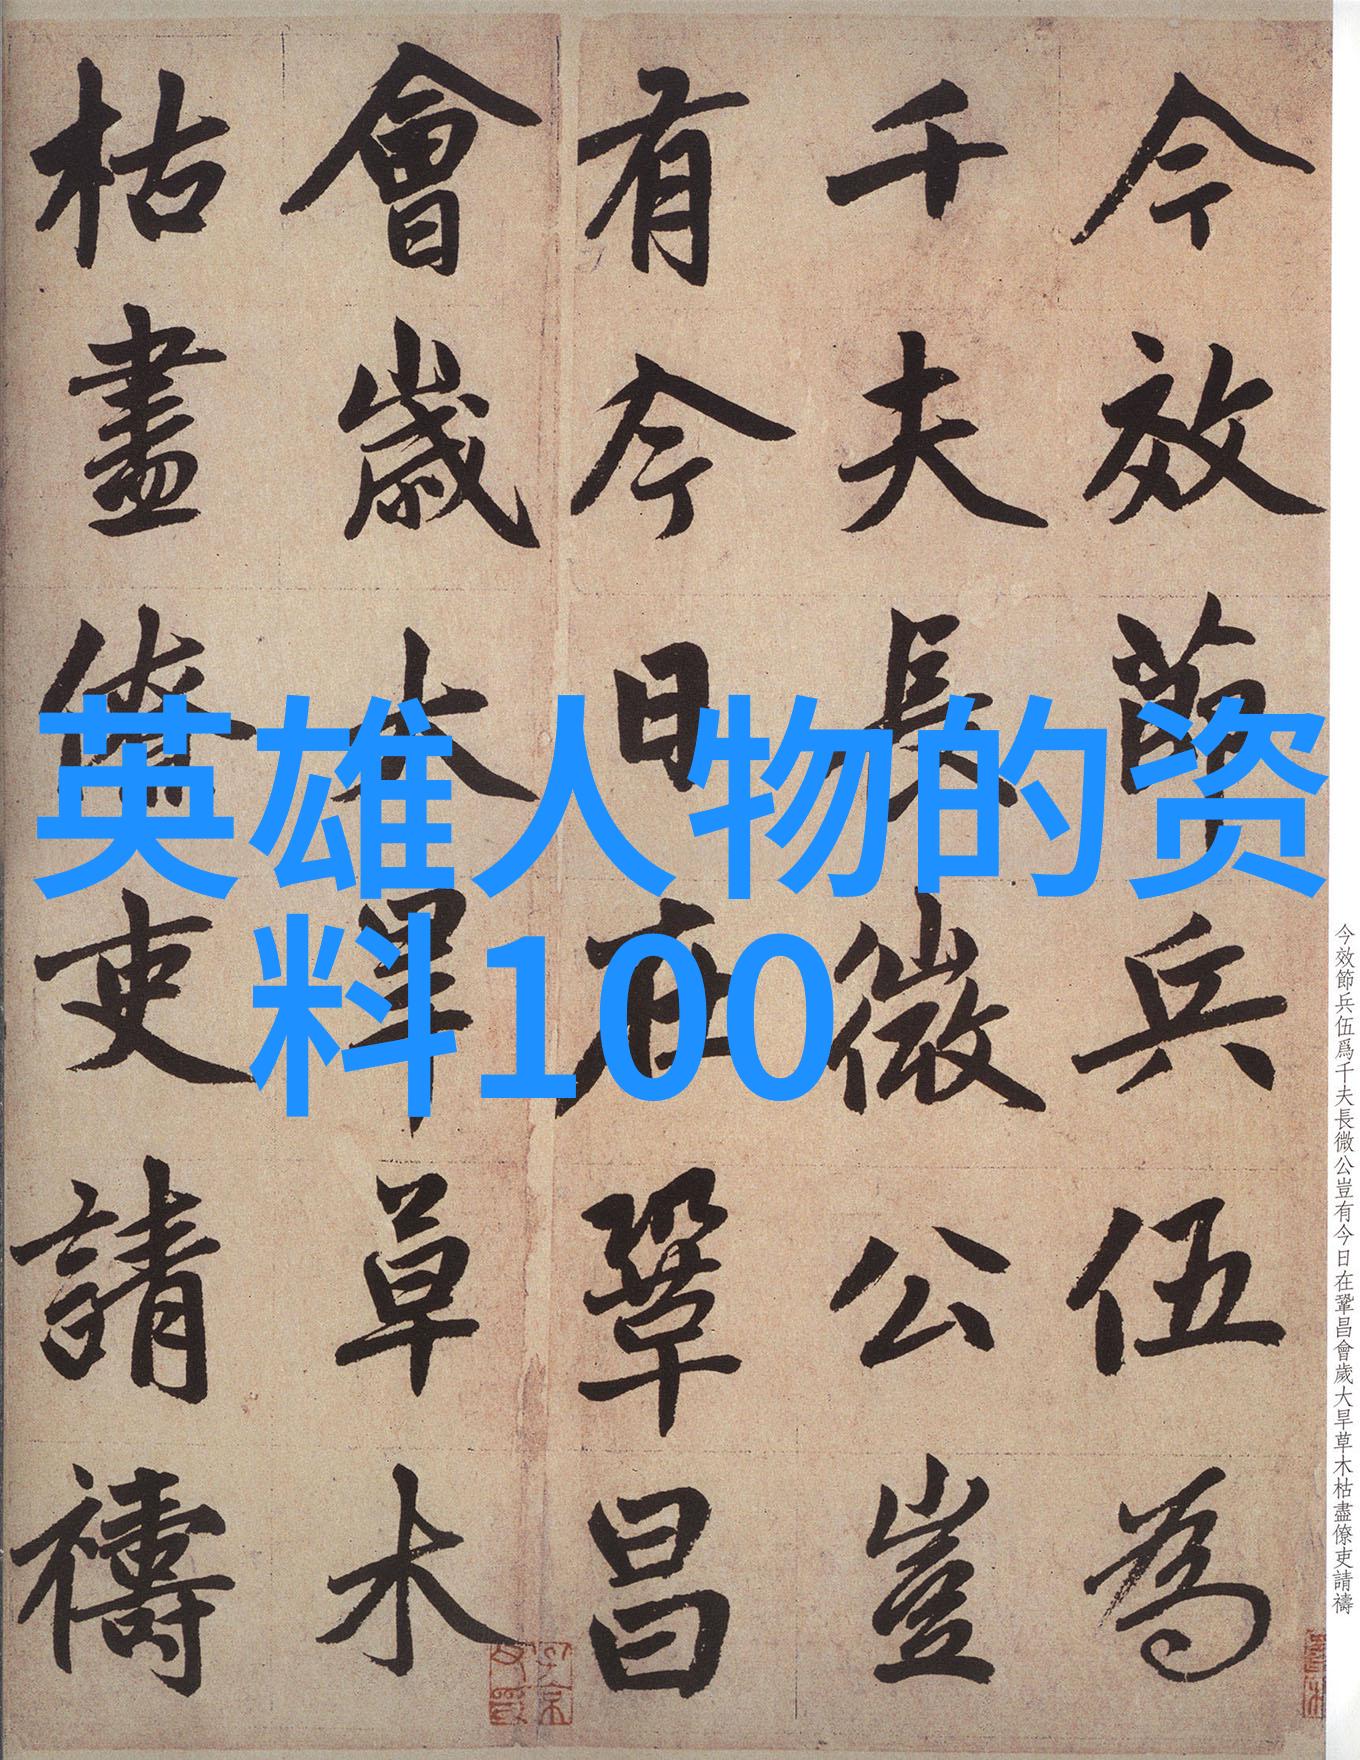 今效節兵伍為
千夫長微公豈
有今日在鞏昌
會歲大旱草木
枯盡僚吏請禱
英雄人物的资
料100
今效節兵伍爲千夫長微公豈有今日在鞏昌會歲大旱草木枯盡僚吏請禱